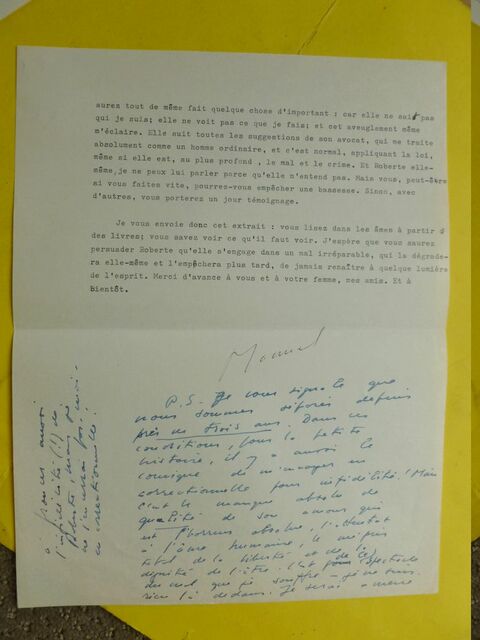 aurez tout de même fait quelque chose d'important : car elle ne sait pas
qui je suis; elle ne voit pas ce que je fais; et cet aveuglement même
m'éclaire. Elle suit toutes les suggestions de son avocat, qui me traite
absolument comme un homme ordinaire, et c'est normal, appliquant la loi,
même si elle est, au plus profond , le mal et le crime. Et Roberte elle-
même, je ne peux lui parler parce qu'elle n'entend pas. Mais vous, peut-être
si vous faites vite, pourrez-vous empêcher une bassesse. Sinon, avec
d'autres, vous porterez un jour témoignage.
Je vous envoie donc cet extrait : vous lisez dans les âmes à partir d
des livres; vous savez voir ce qu'il faut voir. J'espère que vous saurez
persuader Roberte qu'elle s'engage dans un mal irréparable, qui la dégrade-
ra elle-même et l'empêchera plus tard, de jamais renaître à quelque lumière
de l'esprit. Merci d'avance à vous et à votre femme, mes amis. Et à
bientôt.
P.S- Je vous signale que
nous sommes séparés depuis
près de trois ans. Dans ces
conditions, pour la petite
histoire, il y a aussi le
comique de m'envoyer en
correctionnelle pour infidélité! Mais
c'est le manque absolu de
qualité de son amour qui
est l'horreur absolue, l'attentat
à l'âme humaine, le mépris
total de la liberté et de la
dignité de l'être. C'est pour ce spectacle
du mal que je souffre - je ne suis
rien là dedans. Je serai
à prouver aussi
l'infidélité (!) de
Roberte, mais je
ne l'enverrai pas, moi -
en correctionnelle!